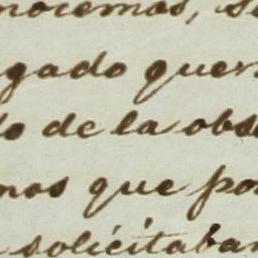 nocemos, se
gado quer
do de la obs
mos que por
solicitaban